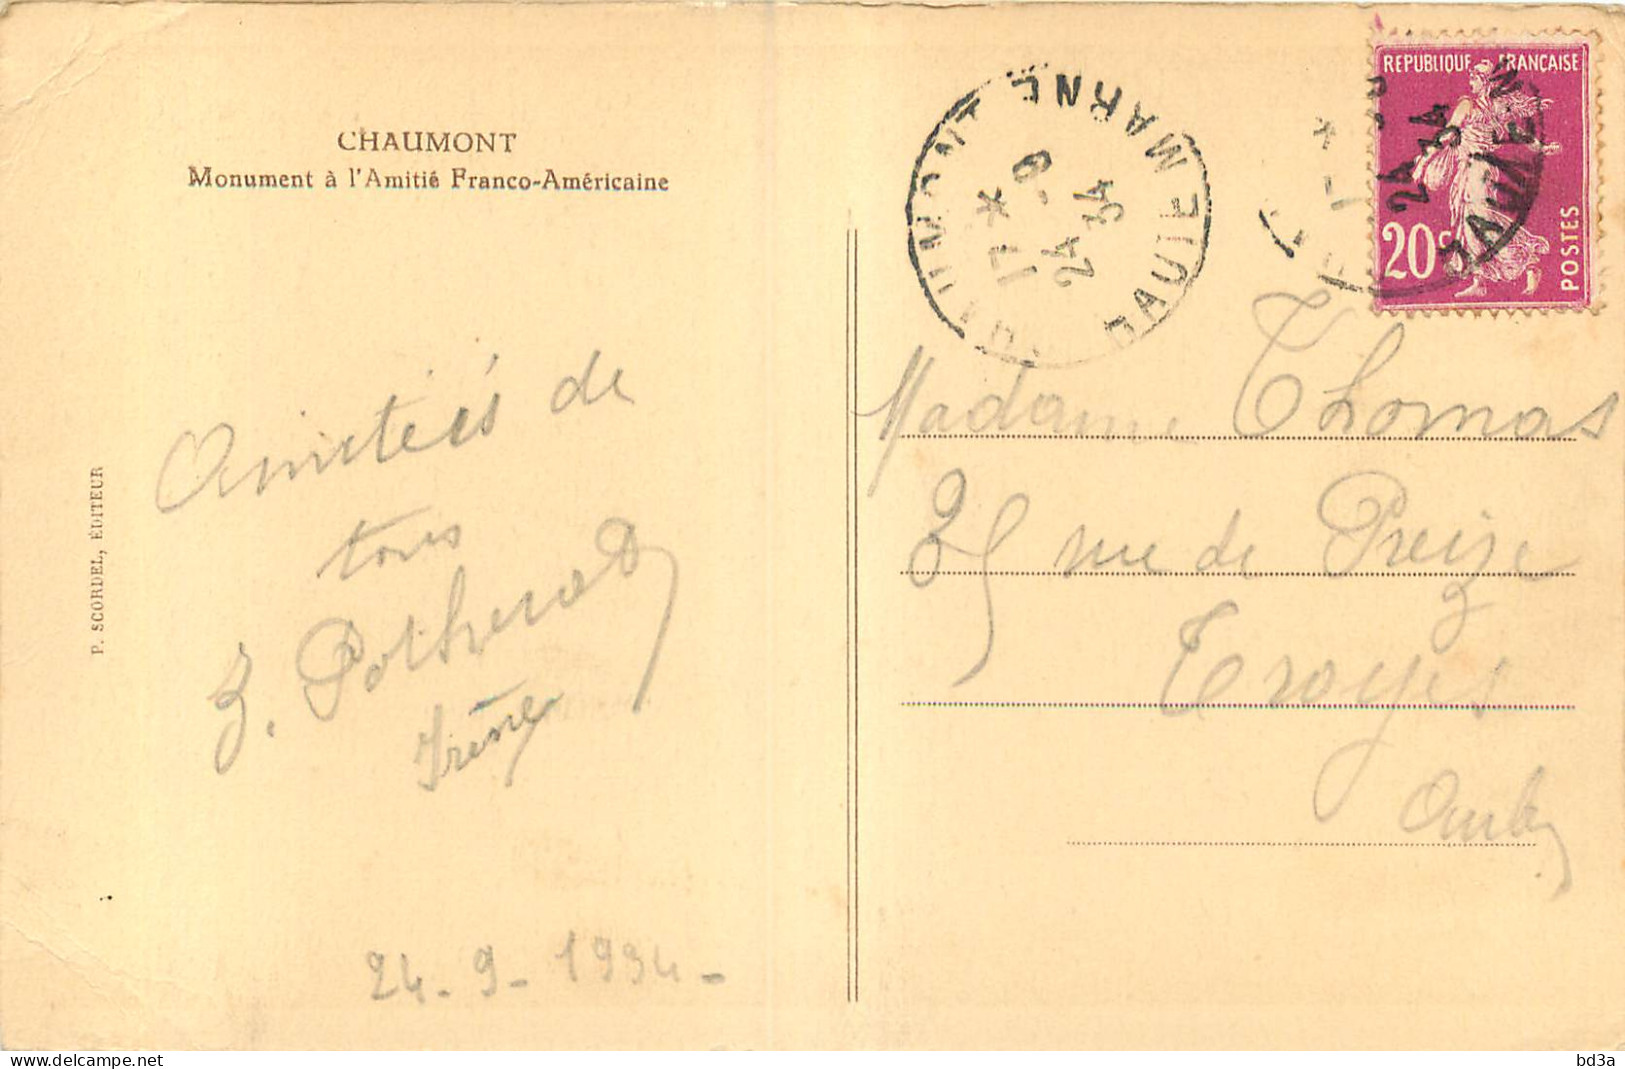 CHAUMONT
Monument à l'Amitié Franco-Américaine
P. SCORDEL, ÉDITEUR
Amitiés de
tous
Irène
24-9-1934-
CHAUMONT HAUTE MARNE
17 * 24 -9 34
REPUBLIQUE FRANÇAISE
20c
POSTES
Madame Thomas
35 rue de Preize
Troyes
Aube
www.delcampe.net
bd3a